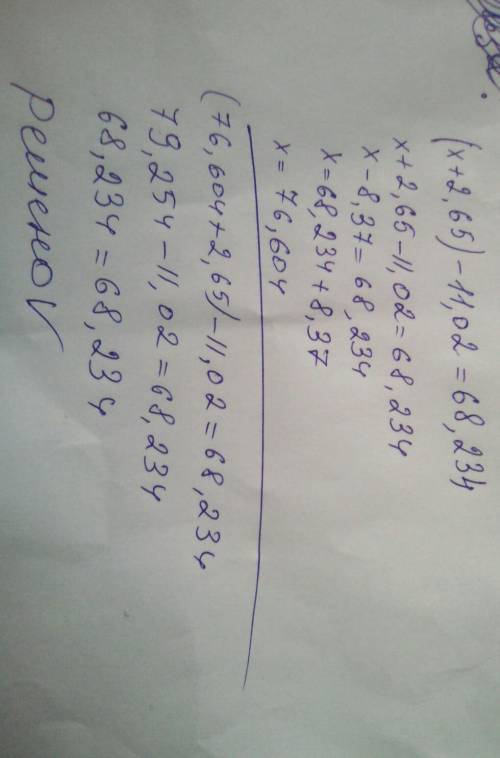 (x+2,65)-11,02=68,234
x+2,65-11,02=68,234
x-8,37=68,234
x=68,234+8,37
x=76,604
(76,604+2,65)-11,02=68,234
79,254-11,02=68,234
68,234=68,234
Решено